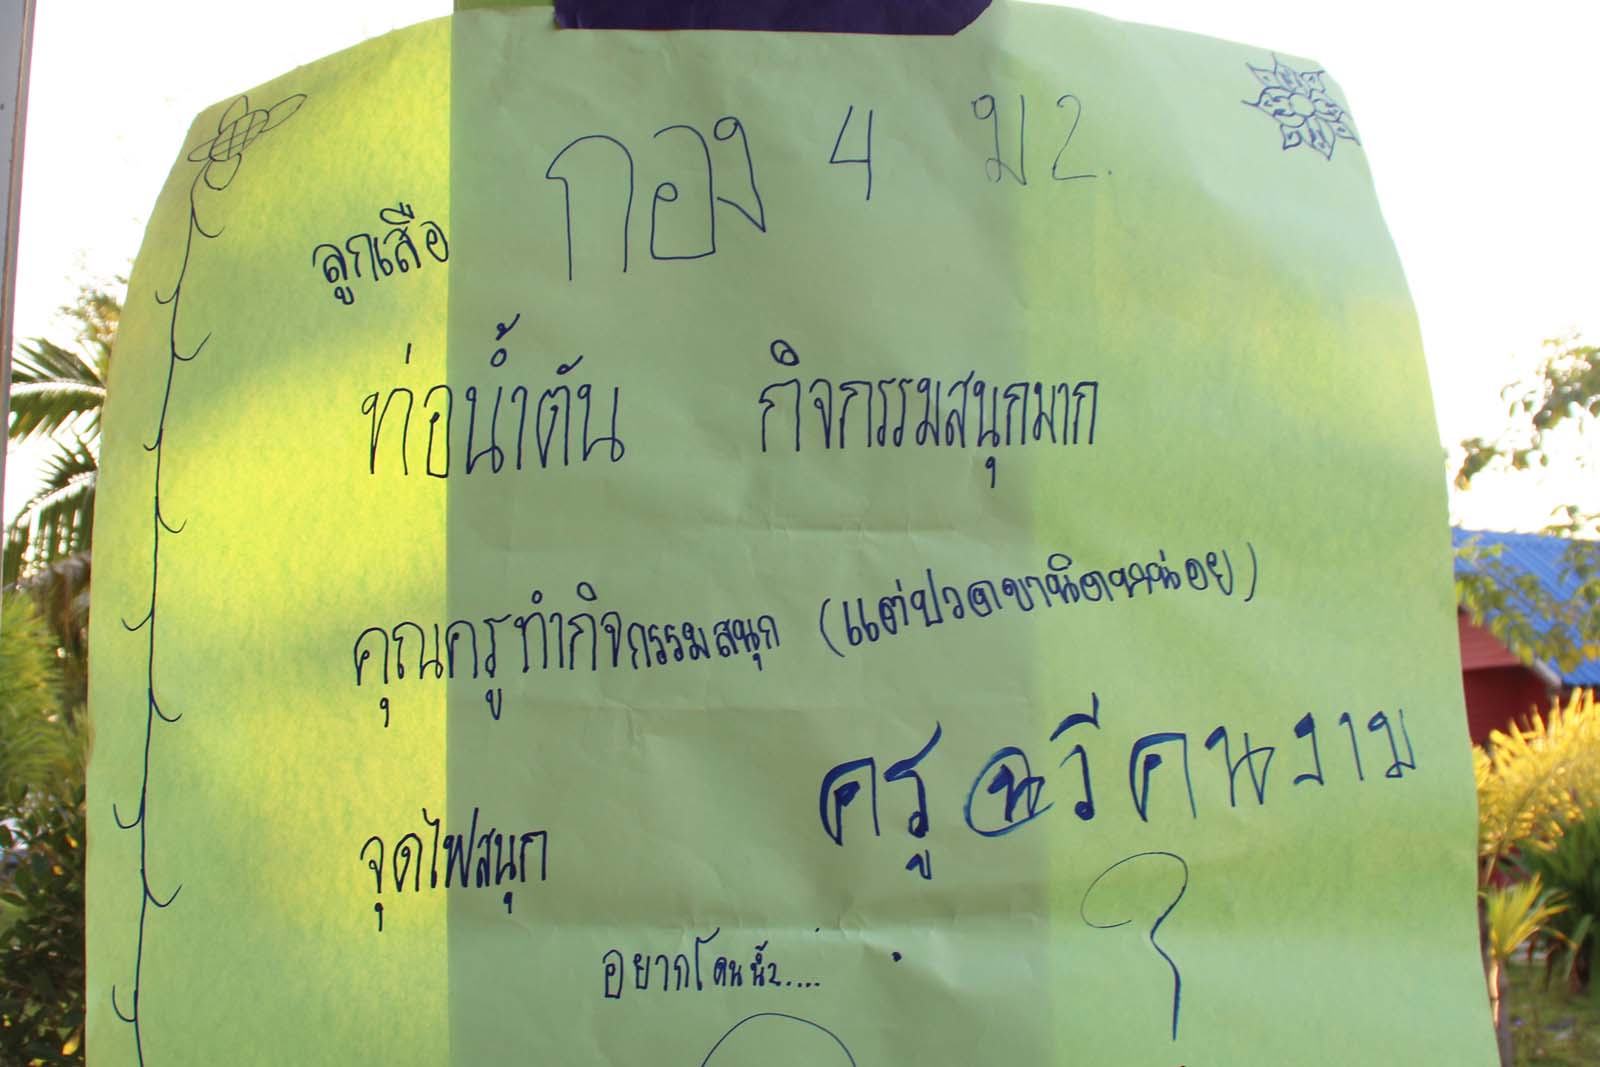 กอง 4 ม2.
ลูกเสือ
ท่อน้ำตัน กิจกรรมสนุกมาก
คุณครูทำกิจกรรมสนุก (แต่ปวดขานิดหน่อย)
ครูฉวีคนงาม
จุดไฟสนุก
?